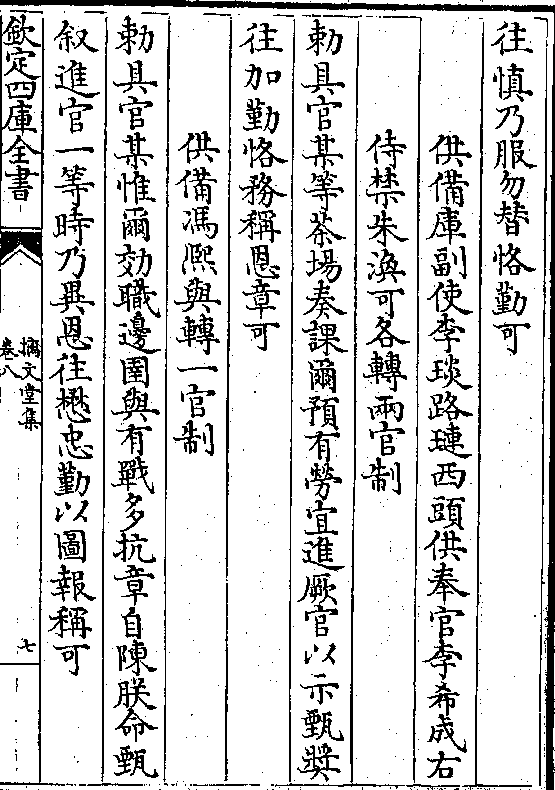 往慎乃服勿替恪勤可
供備庫副使李琰路璉西頭供奉官李希成右
侍禁朱渙可各轉兩官制
勅具官某等茶場奏課爾預有勞宜進厥官以示甄奬
往加勤恪務稱恩章可
供備馮熈與轉一官制
勅具官某惟爾効職邊圉與有戰多抗章自陳朕命甄
叙進官一等時乃異恩往懋忠勤以圖報稱可
欽定四庫全書
摛文堂集
卷八
七